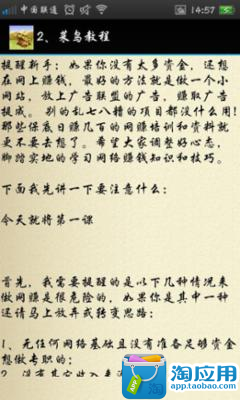 中国联通
14:57
2、菜鸟教程
提醒新手：如果你没有太多资金，还想
在网上赚钱，最好的方法就是做一个小
网站，放上广告联盟的广告，赚取广告
提成。别的乱七八糟的项目都没什么用！
那些保底日赚几百的网赚培训和资料就
更不要去想了。希望大家调整好心态，
脚踏实地的学习网络赚钱知识和技巧。
下面我先讲一下要注意什么：
今天就将第一课
首先，我需要提醒的是以下几种情况来
做网赚是很危险的，如果你是其中一种
还请马上放弃或转变思路：
1、无任何网络基础且没有准备足够资金
想做专职的；
2、没有其它收入来
淘应用
app.taobao.com